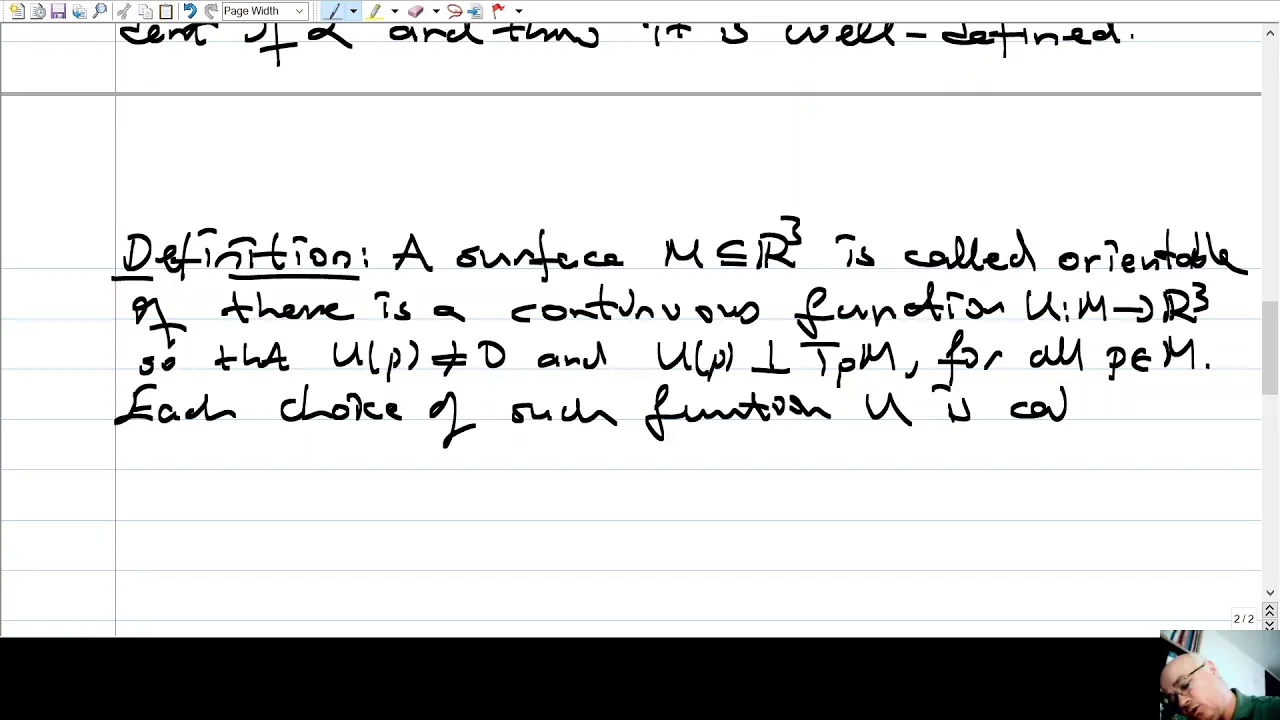 Page Width
and thus it is well-defined.
Definition: A surface M ⊆ ℝ³ is called orientable
if there is a continuous function U: M → ℝ³
so that U(p) ≠ 0 and U(p) ⊥ TpM, for all p ∈ M.
Each choice of such function U is cal
2 / 2